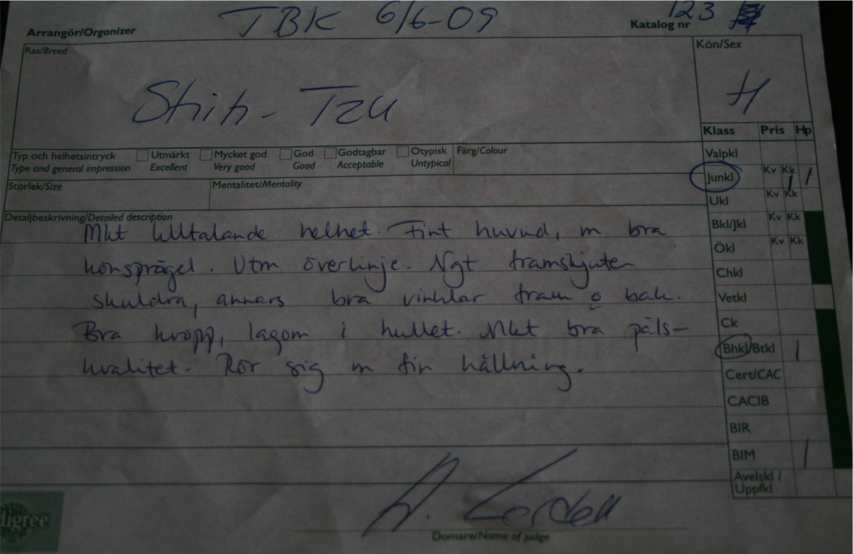 Arrangör/Organizer TBK 6/6-09 Katalog nr 123
Ras/Breed
Kön/Sex
Shih-Tzu
H
Klass Pris Hp
Typ och helhetsintryck Utmärkt Mycket god God Godtagbar Otypisk Färg/Colour
Type and general impression Excellent Very good Good Acceptable Untypical
Valpkl
Junkl Kv Kk 1 1
Storlek/Size Mentalitet/Mentality
Ukl Kv Kk
Detaljbeskrivning/Detailed description
Bkl/Jkl Kv Kk
Mkt tilltalande helhet. Fint huvud, m bra
könsprägel. Utm överlinje. Ngt framskjuten
Ökl Kv Kk
Chkl
skuldra, annars bra vinklar fram o bak.
Vetkl
Bra kropp, lagom i hullet. Mkt bra päls-
Ck
kvalitet. Rör sig m fin hållning.
Bhkl/Btkl 1
Cert/CAC
CACIB
BIR
BIM 1
Avelskl /
Uppfkl
digree
Domare/Name of judge